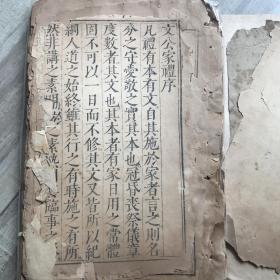 文公家禮序
凡禮有本有文自其施於家者言之則名
分之守愛敬之實其本也冠昏喪祭儀章
度數者其文也其本者有家日用之常體
固不可以一日而不修其文又皆所以紀
綱人道之始終雖其行之有時施之有所
然非講之素明習之素熟則其臨事之